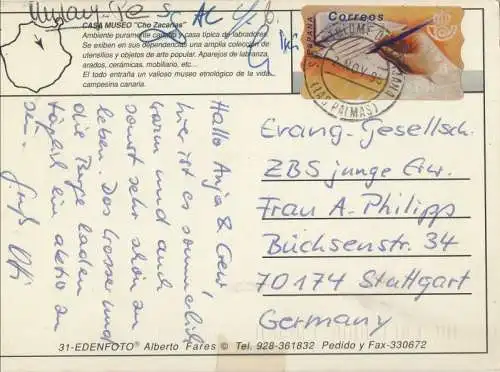 CASA MUSEO "Cho Zacarías"
Ambiente puramente canario y casa típica de labradores.
Se exiben en sus dependencias una amplia colección de
utensilios y objetos de arte popular. Aparejos de labranza,
arados, cerámicas, mobiliario, etc...
El todo entraña un valioso museo etnológico de la vida
campesina canaria.
Correos
ESPAÑA
(LAS PALMAS)
Hallo Anja & Crew!
hier ist es sommerlich
warm und auch
sonst sehr schön zu
leben. Das Grosse und
die Berge laden
täglich ein aktiv zu
sein.
Gruß
Evang-Gesellsch.
ZBS junge Erw.
Frau A. Philipp
Büchsenstr. 34
70174 Stuttgart
Germany
31-EDENFOTO® Alberto Fares © Tel. 928-361832 Pedido y Fax-330672